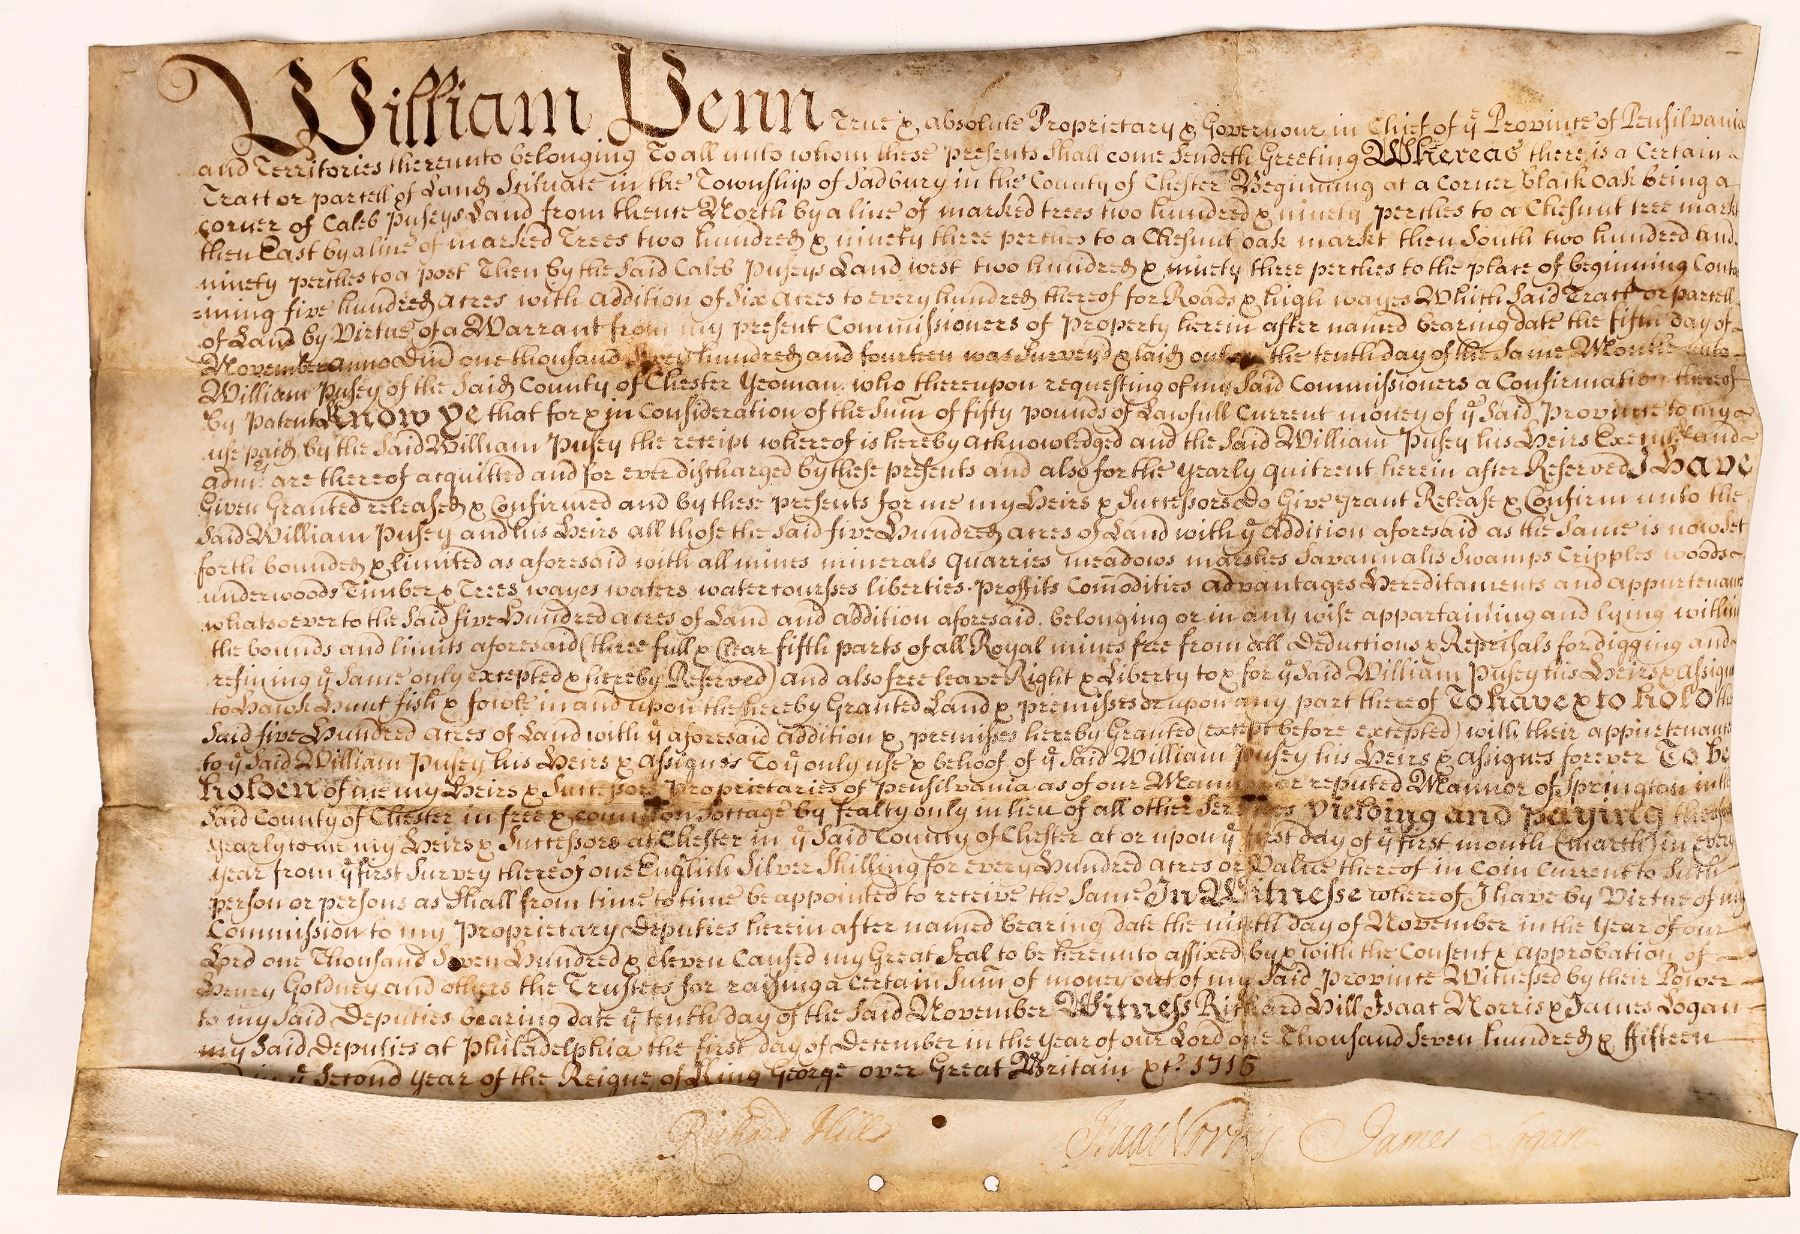 William Penn True & absolute Proprietary & Governour in Chief of yͤ Province of Pensilvania
and Territories thereunto belonging To all unto whom these presents Shall come Sendeth Greeting Whereas there is a Certain
Tract or parcell of Land Scituate in the Township of Sadbury in the County of Chester Beginning at a Corner black oak being a
corner of Caleb Puseys Land from thence North by a line of marked trees two hundred & ninety perches to a Chesnut tree markt
then East by a line of marked Trees two hundred & ninety three perches to a Chesnut oak markt then South two hundred and
ninety perches to a post Then by the Said Caleb Puseys Land west two hundred & ninety three perches to the place of beginning Conta
ining five hundred acres with addition of Six Acres to every hundred thereof for Roads & high wayes Which Said Tract or parcell
of Land by Virtue of a Warrant from my present Commissioners of Property herein after named bearing date the fifth day of
November anno Dm̄ one thousand Seven hundred and fourteen was Surveyd & laid out on the tenth day of the Same Month unto
William Pusey of the Said County of Chester Yeoman who thereupon requesting of my Said Commissioners a Confirmation thereof
by Patent Know ye that for & in Consideration of the Sum̄ of fifty pounds of Lawfull Current money of yͤ Said Province to my
use paid by the Said William Pusey the receipt whereof is hereby acknowledged and the Said William Pusey his Heirs and
admͬˢ are thereof acquitted and for ever discharged by these presents and also for the yearly quitrent herein after Reserved I Have
Given Granted released & Confirmed and by these presents for me my Heirs & Successors Do Give Grant Release & Confirm unto the
Said William Pusey and his Heirs all those the Said five Hundred acres of Land with yͤ addition aforesaid as the Same is now Set
forth bounded & limited as aforesaid with all mines minerals Quarries meadows marshes Savannahs Swamps Cripples woods
underwoods Timber & Trees wayes waters watercourses liberties proffits Com̄odities advantages Hereditaments and appurtenances
whatsoever to the Said five Hundred acres of Land and addition aforesaid belonging or in any wise appertaining and lying within
the bounds and limits aforesaid (three full & Clear fifth parts of all Royal mines free from all Deductions & Reprisals for digging and
refining yͤ Same only excepted & hereby Reserved) and also free leave Right & Liberty to & for yͤ Said William Pusey his Heirs & assigns
to Hawk Hunt fish & fowle in and upon the hereby Granted Land & premisses or upon any part thereof To have & to hold the
Said five Hundred acres of Land with yͤ aforesaid addition & premisses hereby Granted (except before excepted) with their appurtenances
to yͤ Said William Pusey his Heirs & assignes To yͤ only use & behoof of yͤ Said William Pusey his Heirs & assignes forever To be
holden of me my Heirs & Successors Proprietaries of Pensilvania as of our Mannor or reputed Mannor of Springton in the
Said County of Chester in free & common Soccage by fealty only in lieu of all other Services Yielding and paying therefore
yearly to me my Heirs & Successors at Chester in yͤ Said County of Chester at or upon yͤ first day of yͤ first month (march) in every
year from yͤ first Survey thereof one English Silver Shilling for every Hundred acres or Value thereof in Coin Current to Such
person or persons as Shall from time to time be appointed to receive the Same In Witnesse whereof I have by Virtue of my
Commission to my Proprietary Deputies herein after named bearing date the ninth day of November in the year of our
Lord one Thousand Seven Hundred & eleven Caused my Great Seal to be hereunto affixed by & with the Consent & approbation of
Henry Goldney and others the Trustees for raising a Certain Sum̄ of money out of my Said Province Witnessed by their Power
to my Said Deputies bearing date yͤ tenth day of the Said November Witness Richard Hill Isaac Norris & James Logan
my Said Deputies at Philadelphia the first day of December in the year of our Lord one Thousand Seven hundred & fifteen
yͤ Second year of the Reigne of King George over Great Britain &tͨ 1715
Richard Hill Isaac Norris James Logan